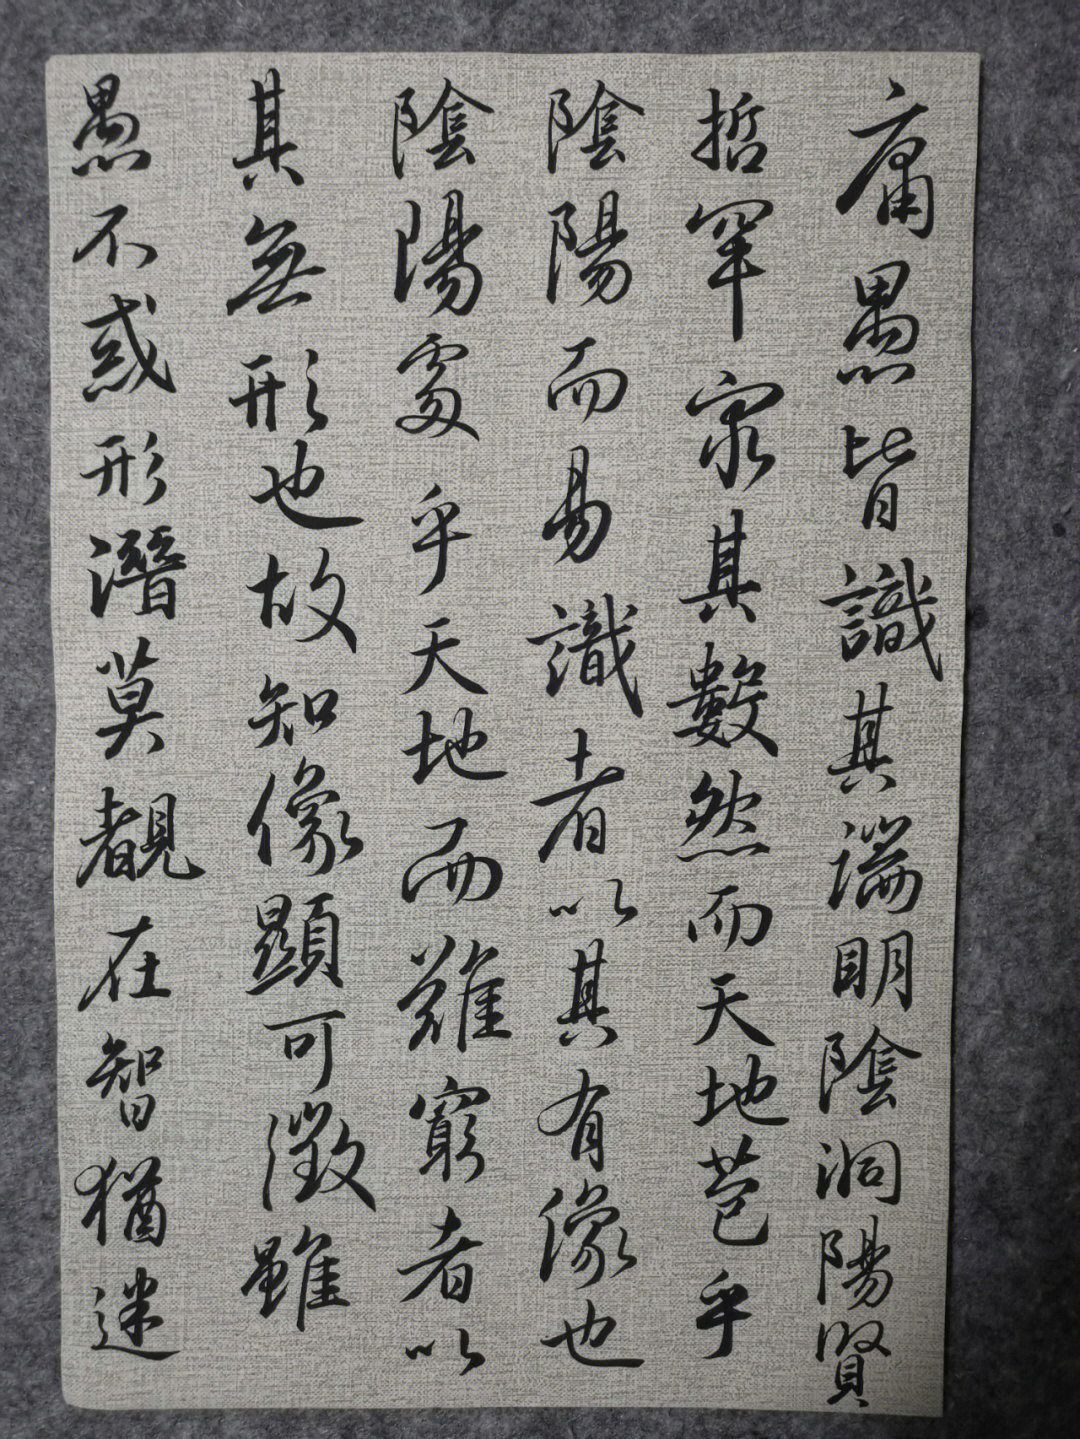 庸愚皆識其端明陰洞陽賢
哲罕窮其數然而天地苞乎
陰陽而易識者以其有像也
陰陽處乎天地而難窮者以
其無形也故知像顯可徵雖
愚不惑形潛莫覩在智猶迷